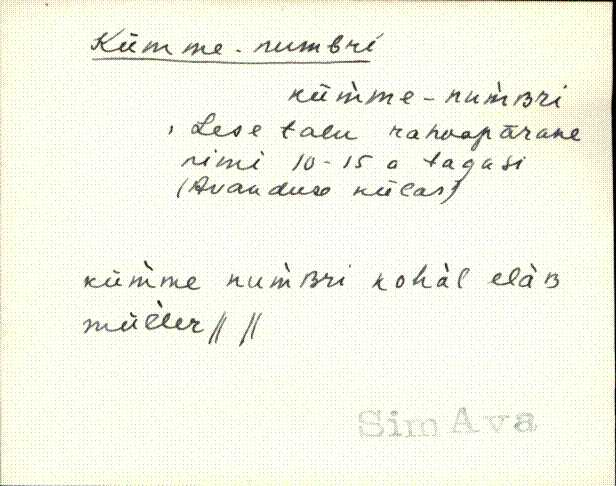 Kümme-numbri
küm̀me-num̀ʙri
, Lese talu rahvapärane
nimi 10-15 a tagasi
(Avanduse külas)
küm̀me num̀ʙri kohàl elàʙ
mül̀ler // //
Sim Ava